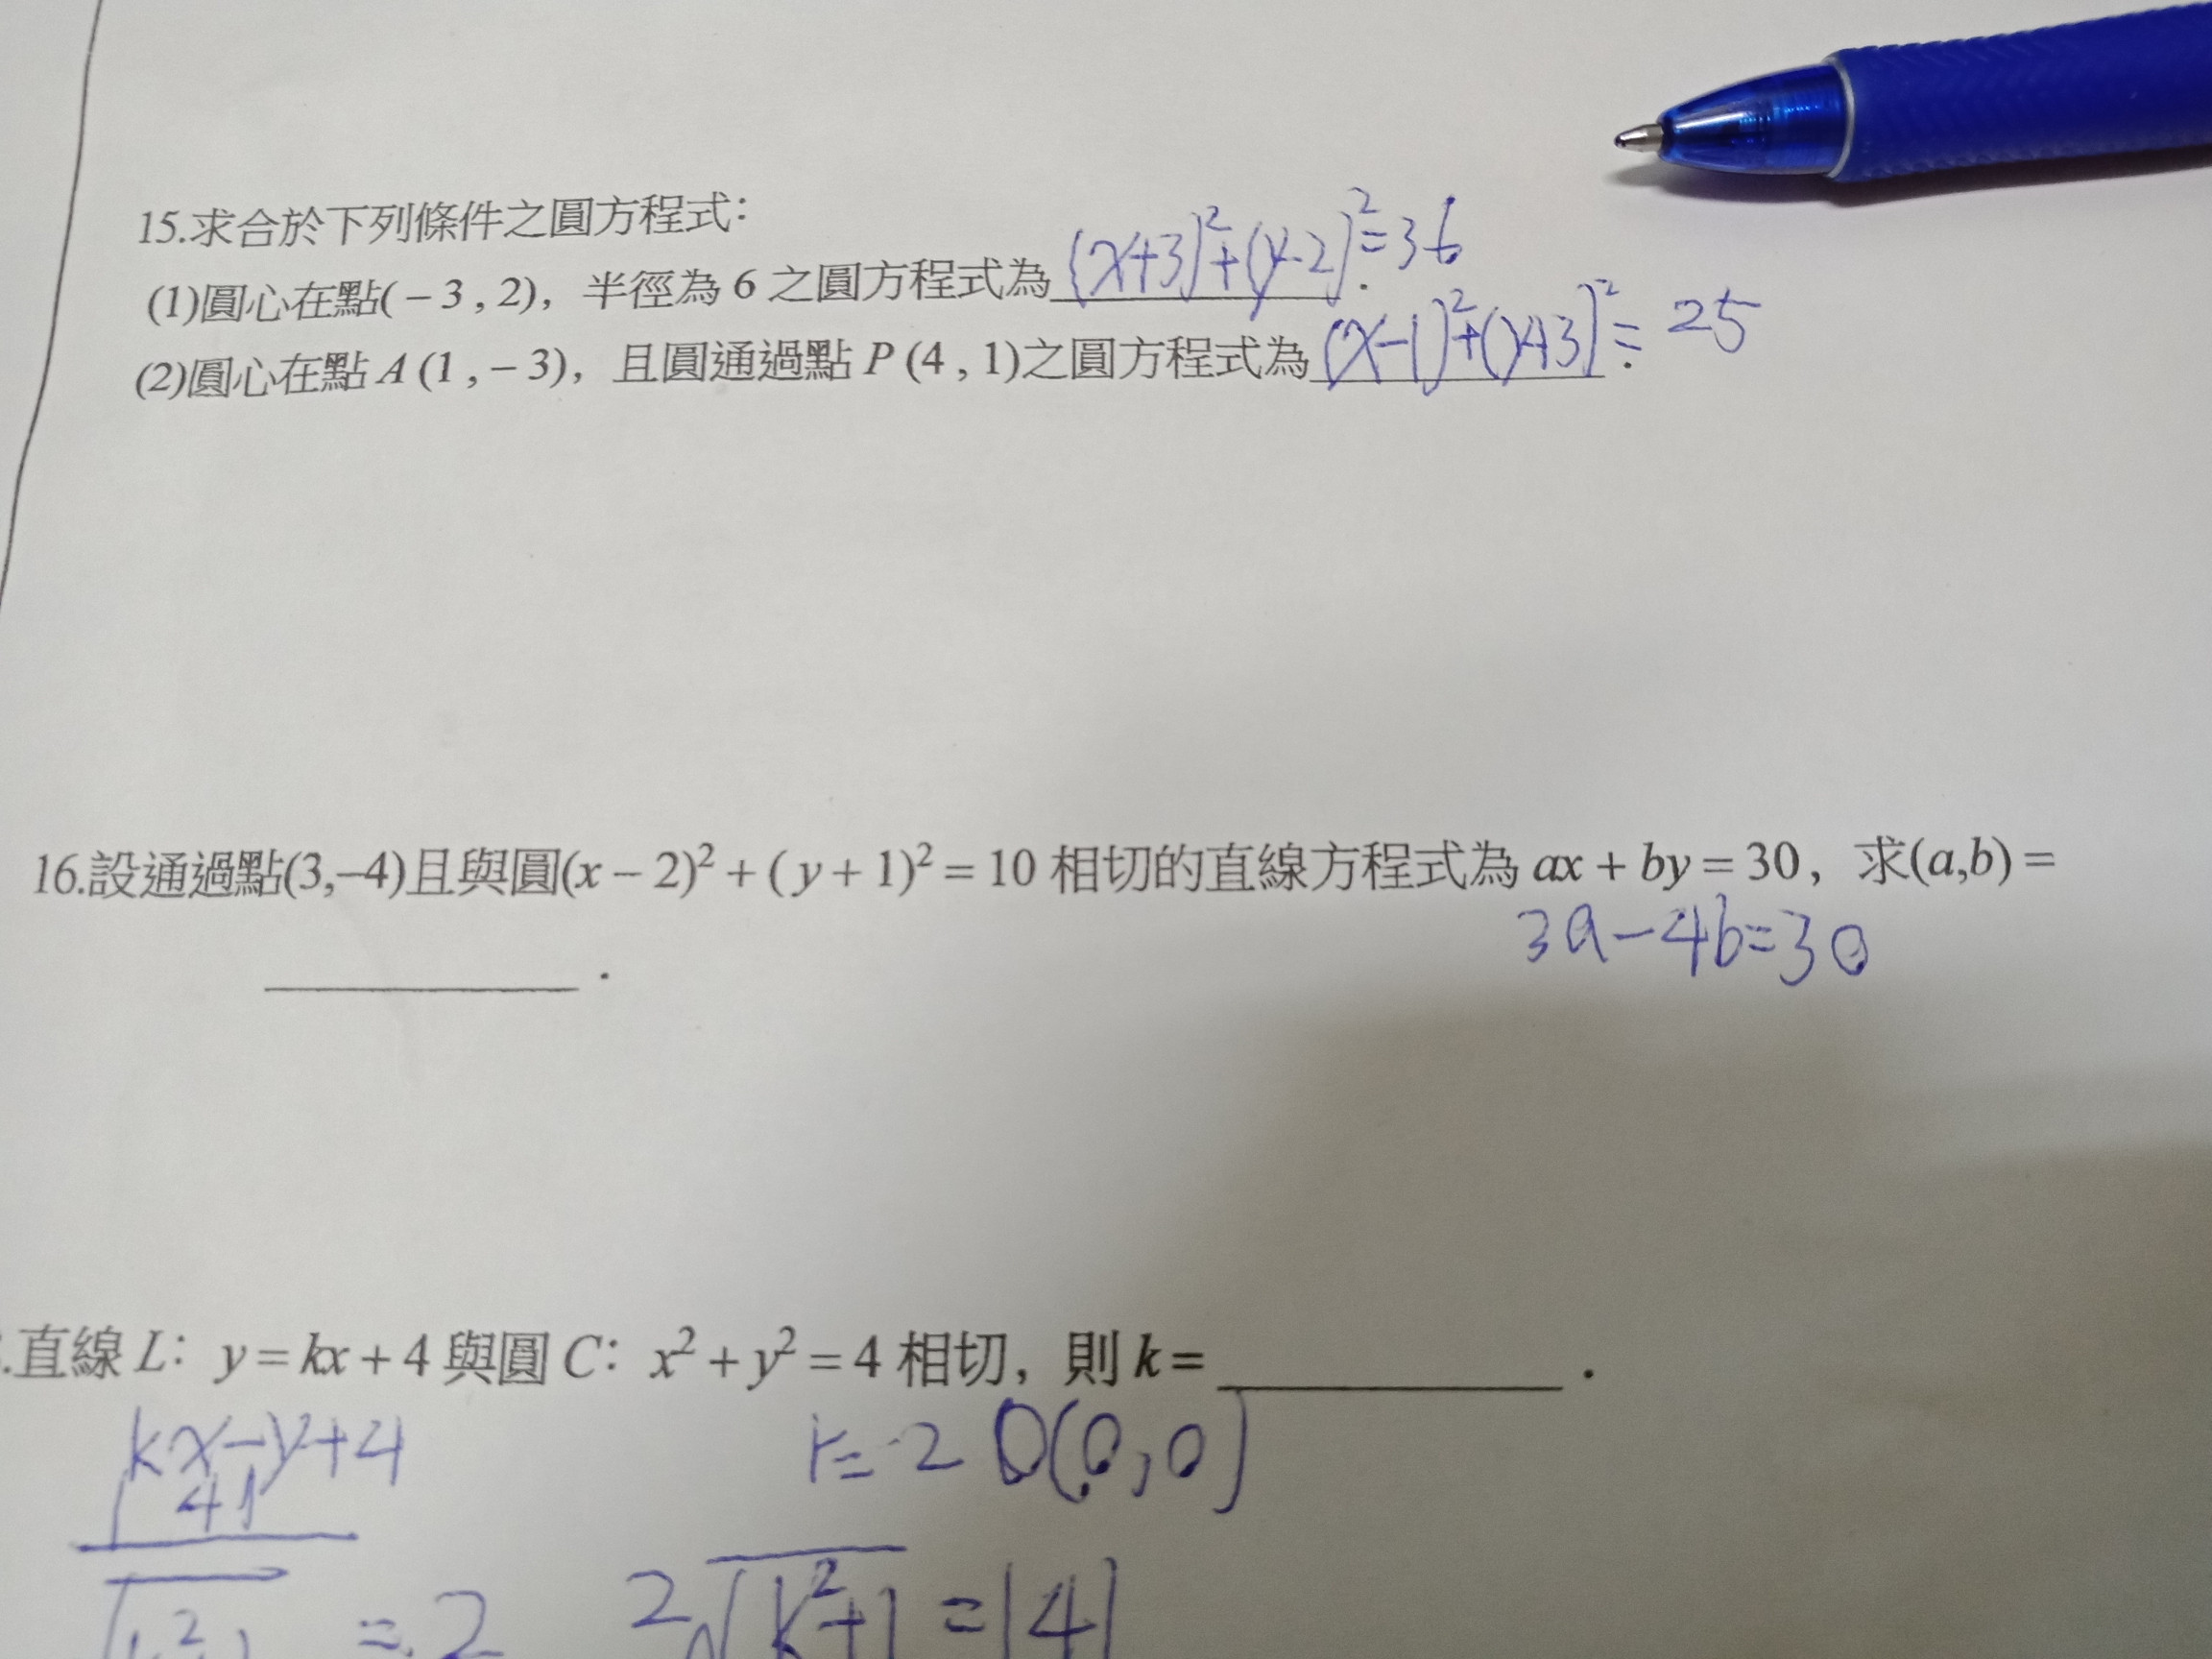 15.求合於下列條件之圓方程式:
(1)圓心在點(-3,2), 半徑為 6 之圓方程式為 (x+3)²+(y-2)²=36 .
(2)圓心在點 A (1,-3), 且圓通過點 P (4,1)之圓方程式為 (x-1)²+(y+3)²=25 .
16.設通過點(3,-4)且與圓(x-2)²+(y+1)²=10 相切的直線方程式為 ax+by=30, 求(a,b)=
3a-4b=30
.
.直線 L: y=kx+4 與圓 C: x²+y²=4 相切, 則 k= .
kx-y+4
r=2 O(0,0)
|4|
=2 2√k²+1=|4|